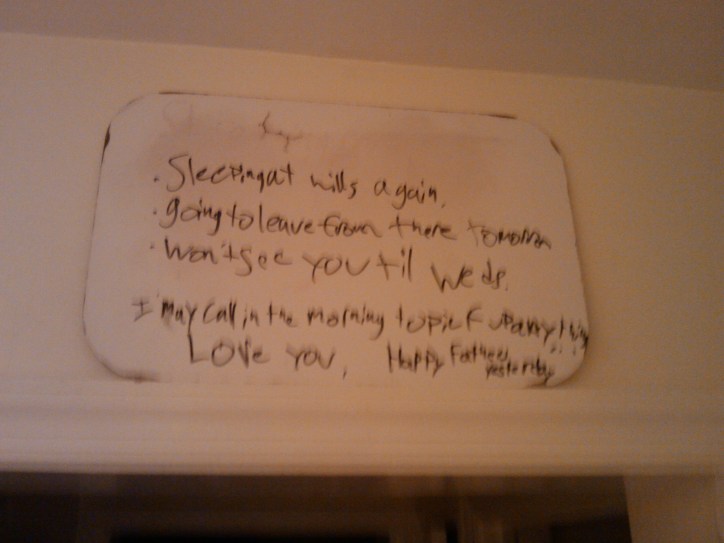 • Sleeping at wills again.
• going to leave from there tomorrow
• won't see you til weds.
I may call in the morning to pick up anything
Love you, Happy Fathers
yesterday